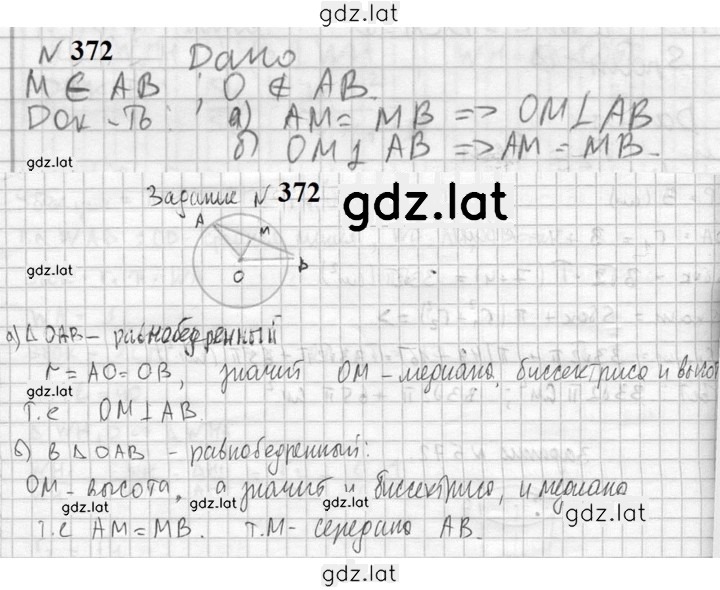 gdz.lat
N 372 Дано
M ∈ AB ; O ∉ AB.
Док-ть: а) AM = MB => OM ⊥ AB
б) OM ⊥ AB => AM = MB.
gdz.lat
Задание N 372
gdz.lat
A
M
B
O
gdz.lat
а) △ OAB – равнобедренный
r = AO = OB, значит OM – медиана, биссектриса и высот
gdz.lat
т.е OM ⊥ AB.
б) В △ OAB – равнобедренный:
OM – высота, а значит и биссектриса, и медиана
gdz.lat gdz.lat gdz.lat
gdz.lat
т.е AM = MB. т.М – середина AB.
gdz.lat